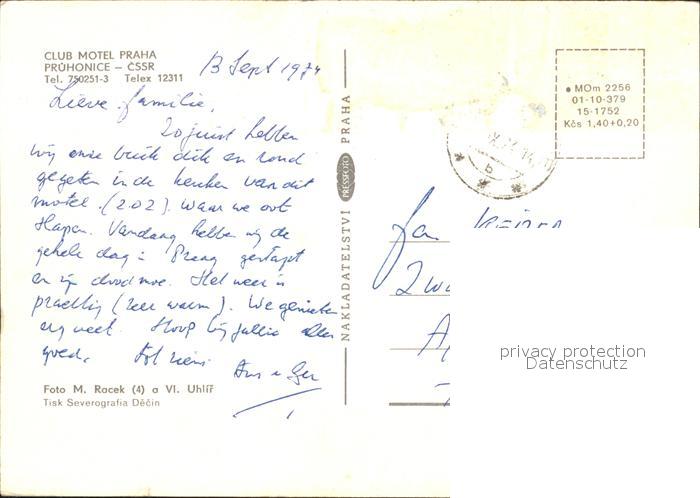 CLUB MOTEL PRAHA
PRŮHONICE – ČSSR
Tel. 750251-3 Telex 12311
13 Sept 1974
Lieve familie,
Zojuist hebben
wij onze buik dik en rond
gegeten in de keuken van dit
motel. (Z.O.Z). Waar we ook
slapen. Vandaag hebben wij de
gehele dag in Praag gestapt
en zijn doodmoe. Het weer is
prachtig (zeer warm). We genieten
erg veel. Hoop bij jullie alles
goed. Tot ziens
Ans en Ger
Foto M. Racek (4) a Vl. Uhlíř
Tisk Severografia Děčín
NAKLADATELSTVÍ PRESSFOTO PRAHA
MOm 2256
01-10-379
15-1752
Kčs 1,40+0,20
b
Fam
Zw
A
privacy protection
Datenschutz